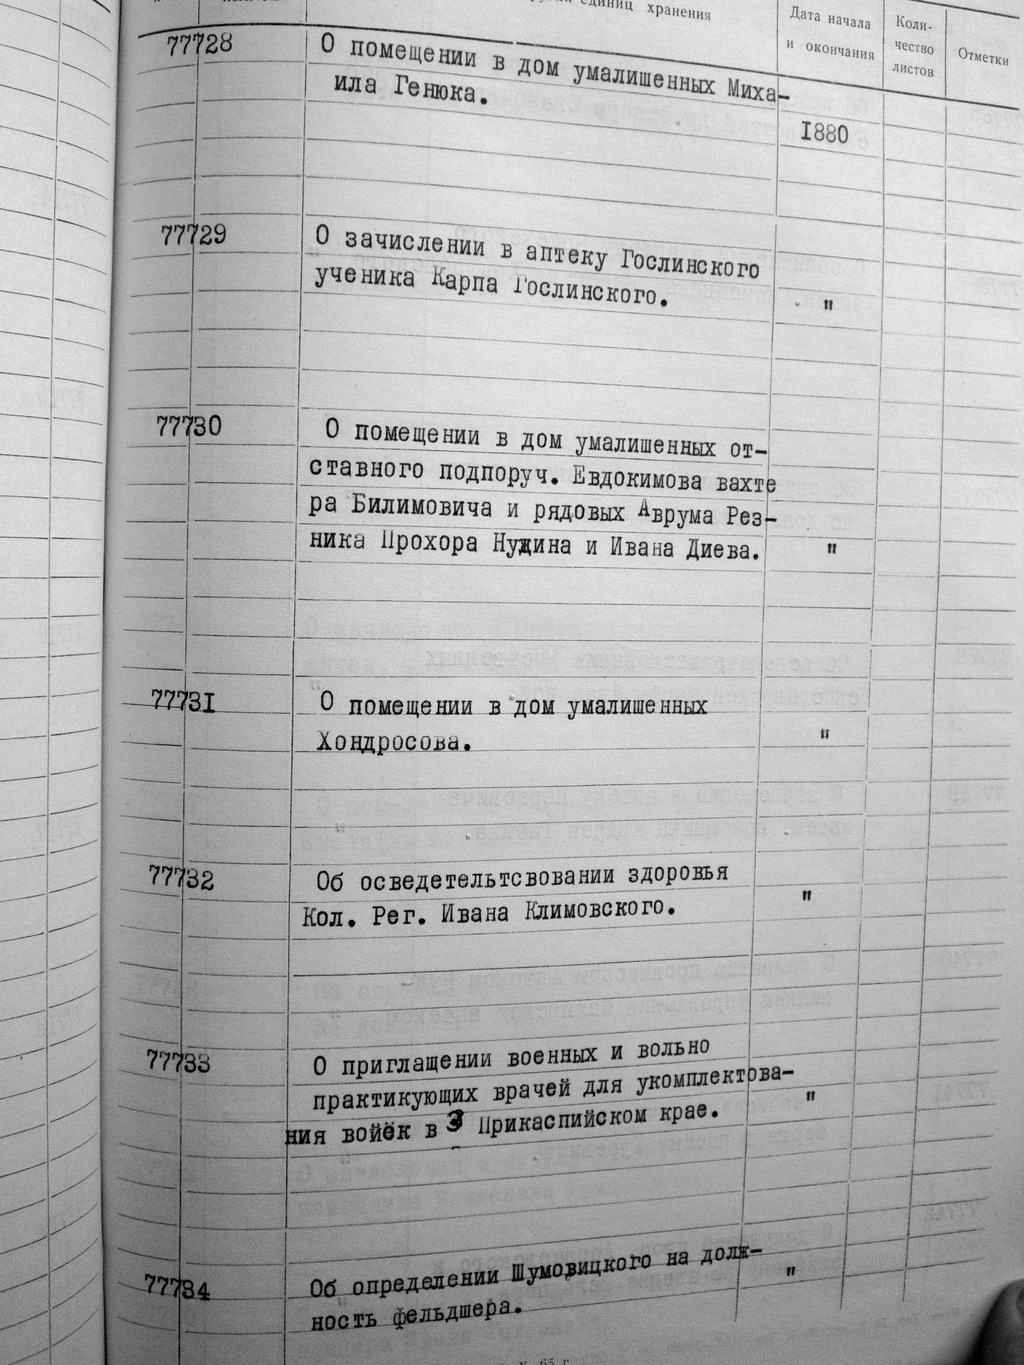 единиц хранения
Дата начала
и окончания
Коли-
чество
листов
Отметки
77728
О помещении в дом умалишенных Миха-
ила Генюка.
1880
77729
О зачислении в аптеку Гослинского
ученика Карпа Гослинского.
"
77730
О помещении в дом умалишенных от-
ставного подпоруч. Евдокимова вахте
ра Билимовича и рядовых Аврума Рез-
ника Прохора Нудина и Ивана Диева.
"
77731
О помещении в дом умалишенных
Хондросова.
"
77732
Об осведетельтсвовании здоровья
Кол. Рег. Ивана Климовского.
"
77733
О приглашении военных и вольно
практикующих врачей для укомплектова-
ния войск в З Прикаспийском крае.
"
77734
Об определении Шумовицкого на долж-
ность фельдшера.
"